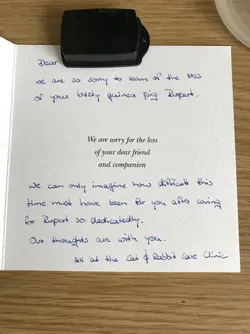 Dear
we are so sorry to learn of the loss
of your lovely guinea pig Rupert.
We are sorry for the loss
of your dear friend
and companion
We can only imagine how difficult this
time must have been for you after caring
for Rupert so dedicatedly.
Our thoughts are with you.
All at the Cat & Rabbit Care Clinic